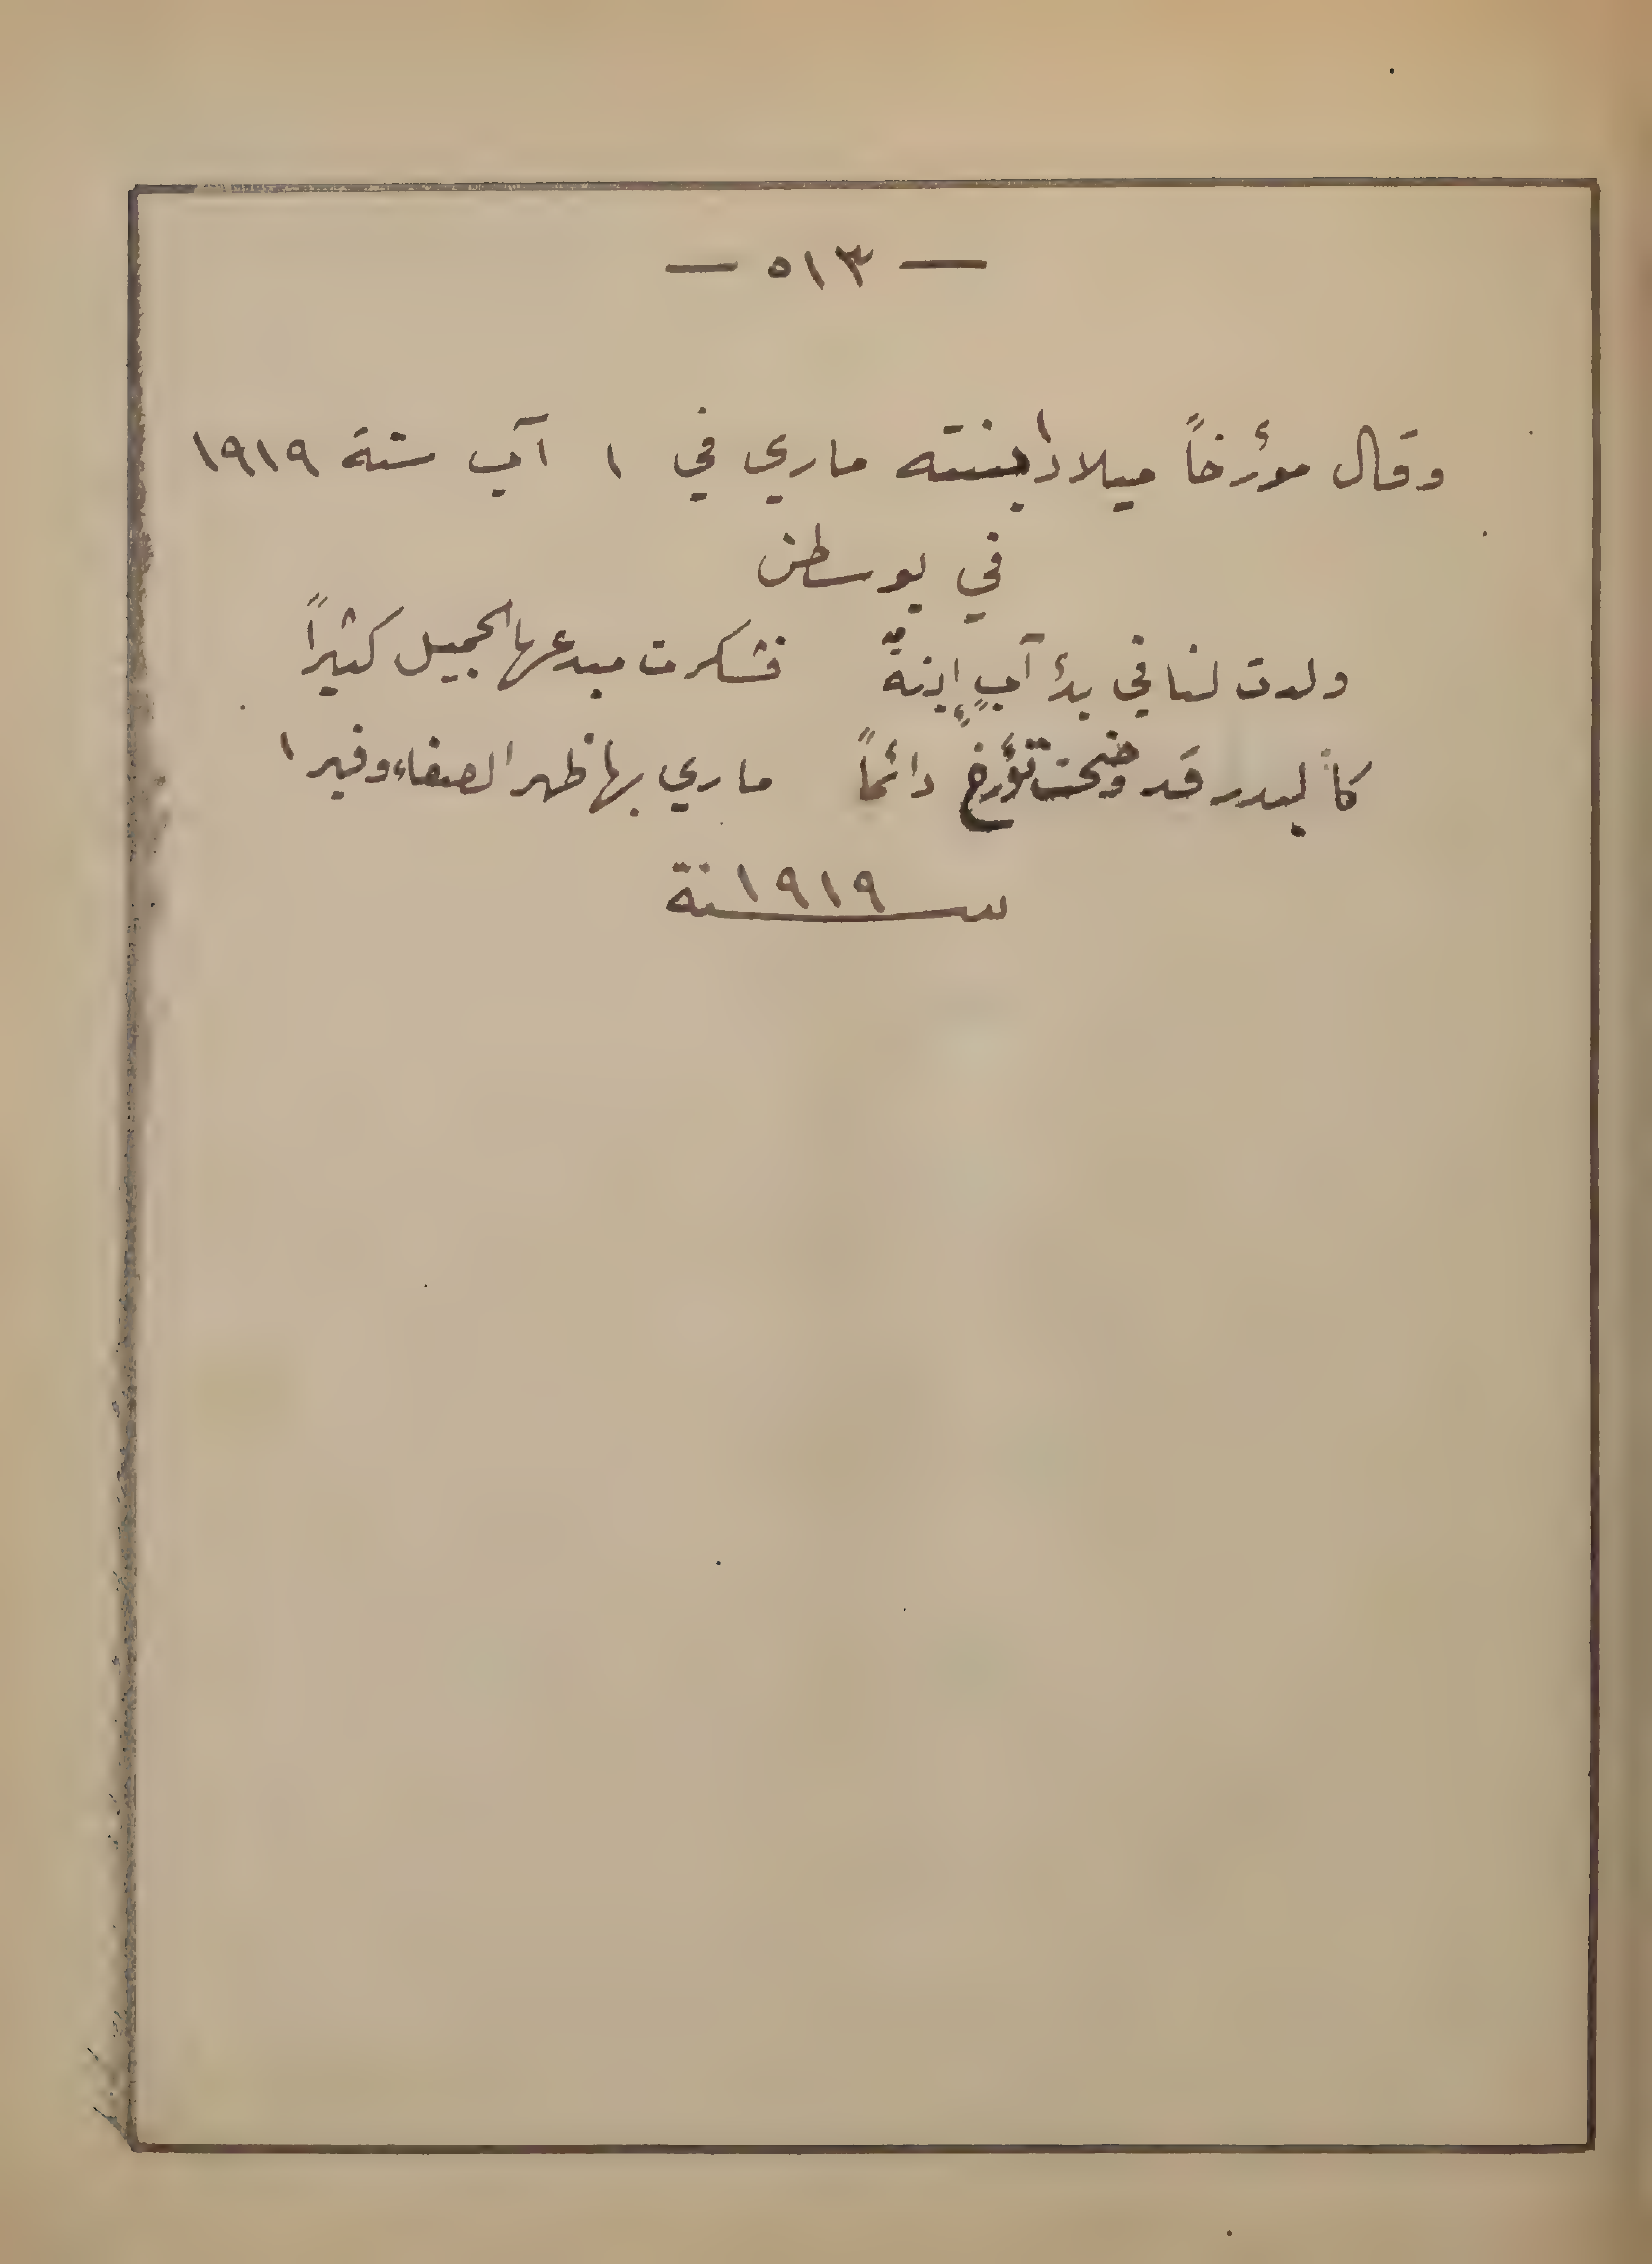 — ٥١٣ —
وقال مؤرخاً ميلاد ابنته ماري في ١ آب سنة ١٩١٩
في بوسطن
ولدت لنا في بدء آبٍ إبنةٌ فشكرت مبدعها الجميل كثيراً
كالبدر قد وضحت تؤرخ دائماً ماري بها ظهر الصفاء وفيرا
سنة ١٩١٩